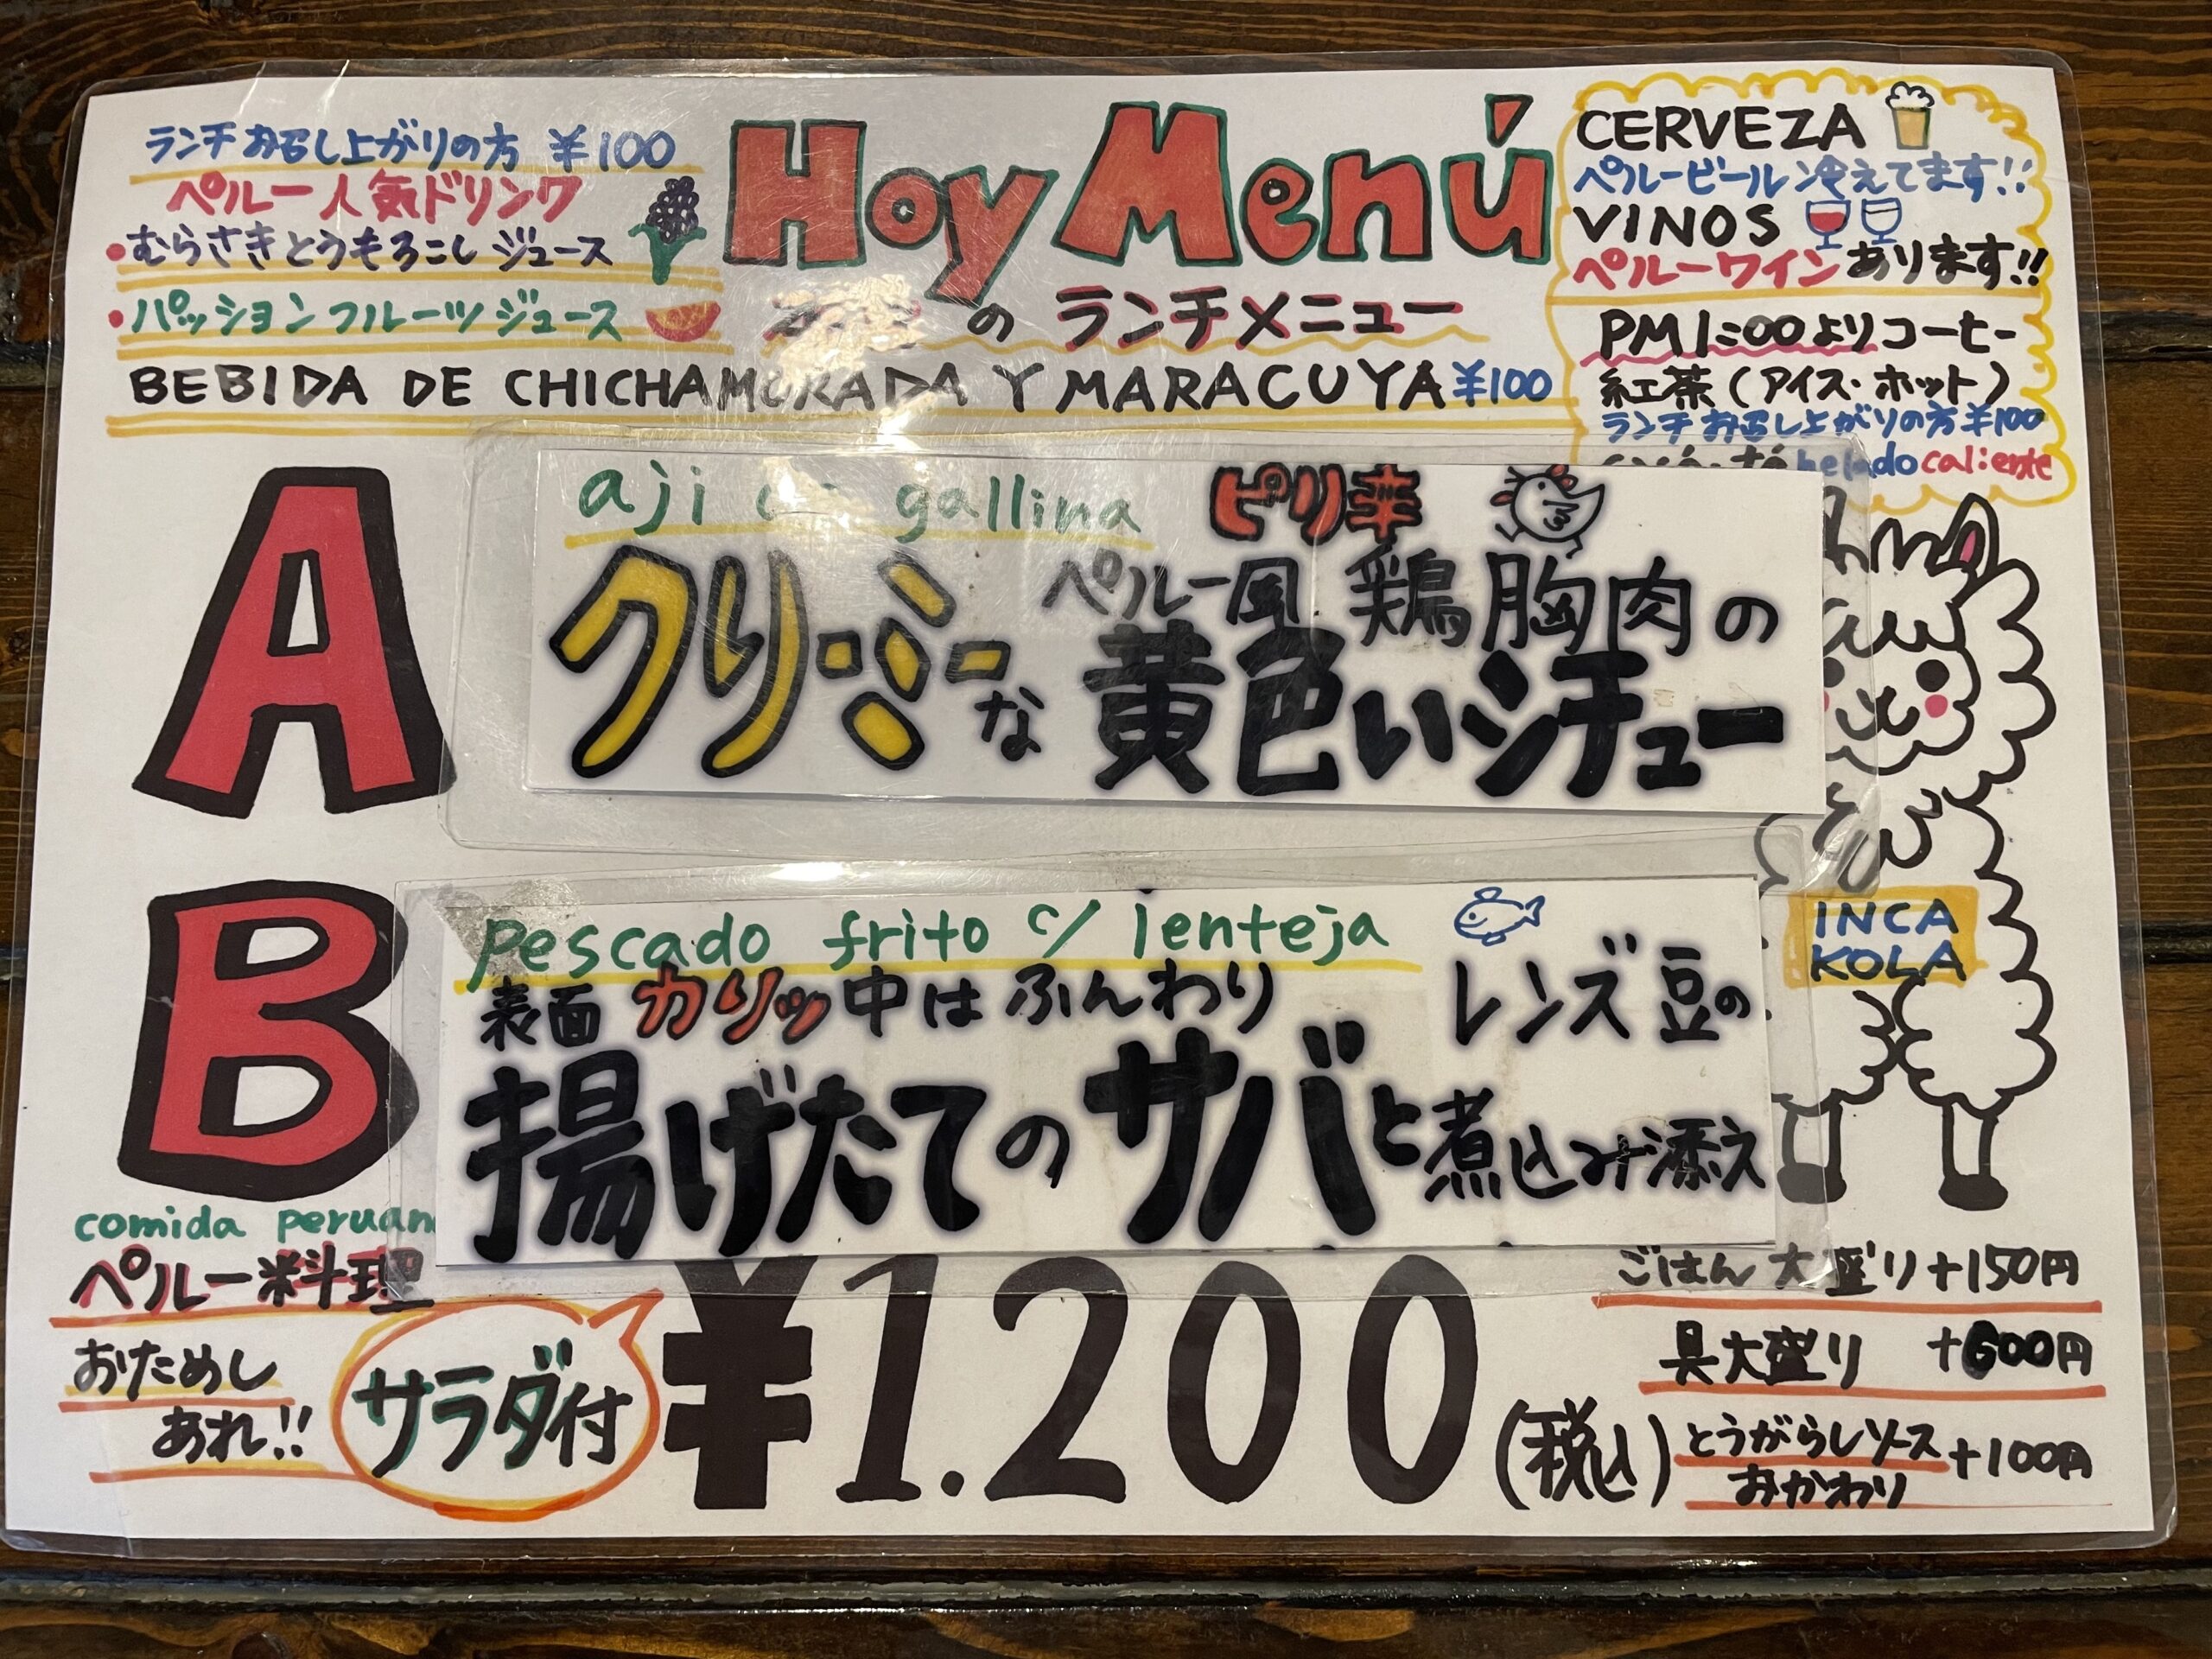 ランチお召し上がりの方 ¥100
ペルー人気ドリンク
・むらさきとうもろこしジュース
・パッションフルーツジュース
Hoy Menú
のランチメニュー
BEBIDA DE CHICHAMORADA Y MARACUYA ¥100
CERVEZA
ペルービール冷えてます!!
VINOS
ペルーワインあります!!
PM1:00よりコーヒー
紅茶(アイス・ホット)
ランチお召し上がりの方¥100
helado caliente
A
aji gallina ピリ辛
ペルー風 鶏胸肉の
クリーミーな黄色いシチュー
B
pescado frito c/ lenteja
表面カリッ中はふんわり レンズ豆の
揚げたてのサバと煮込み添え
INCA
KOLA
comida peruan
ペルー料理
おためし
あれ!!
サラダ付
¥1.200
(税込)
ごはん大盛り+150円
具大盛り +600円
とうがらしソース
おかわり +100円